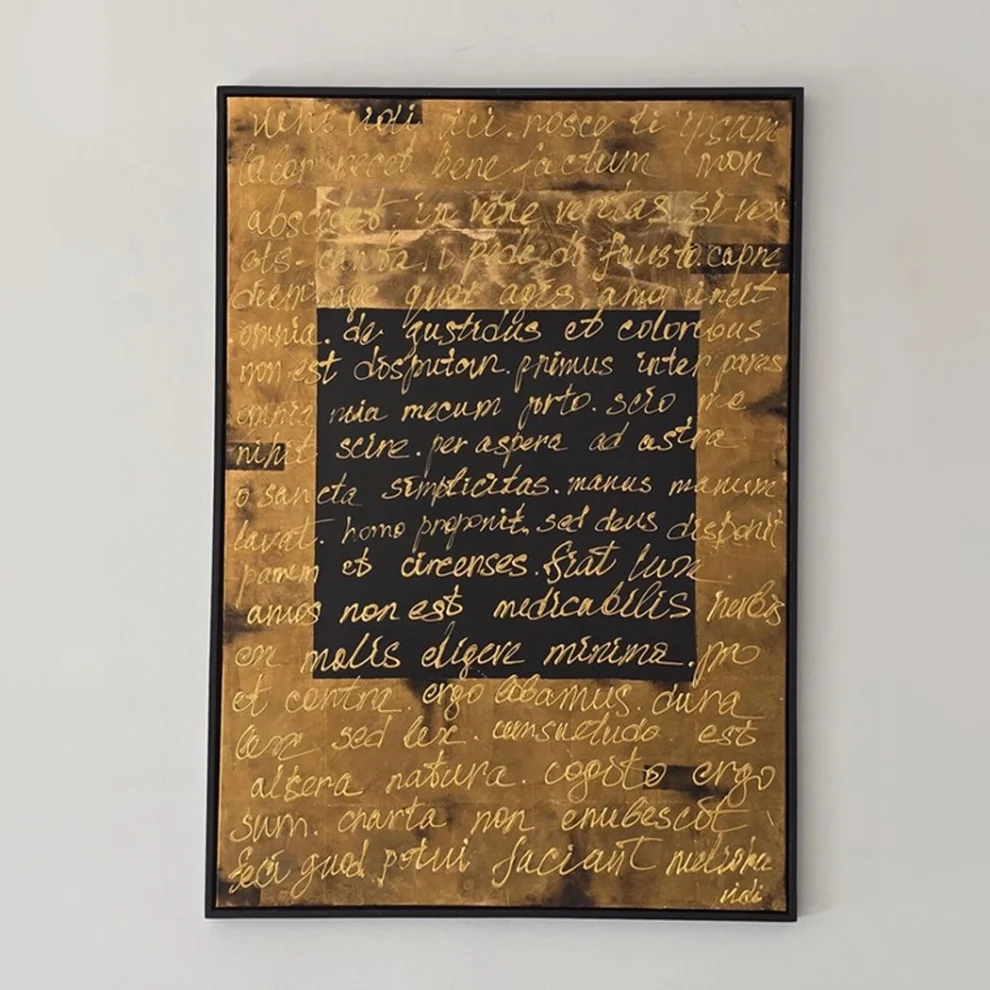 veni vidi vici. nosce ti ipsum
labor recet bene factum non
abscedet. in vine veritas. si vox
ots- canta. i pede di fausto. capre
diem age quot agis amor vincit
omnia. de gustidus et coloribus
non est disputoin. primus inter pares
omnia mia mecum porto. scio me
nihil scire. per aspera ad astra
o sancta simplicitas. manus manum
lavat. homo proponit, sed deus disponit
panem et circenses. fiat lux.
amos non est medicabilis herbis
en malis eligere minima. pro
et contra. ergo bibamus. dura
lex sed lex. consuetudo est
altera natura. cogito ergo
sum. charta non erubescot
feci quod potui faciant meliora
vidi